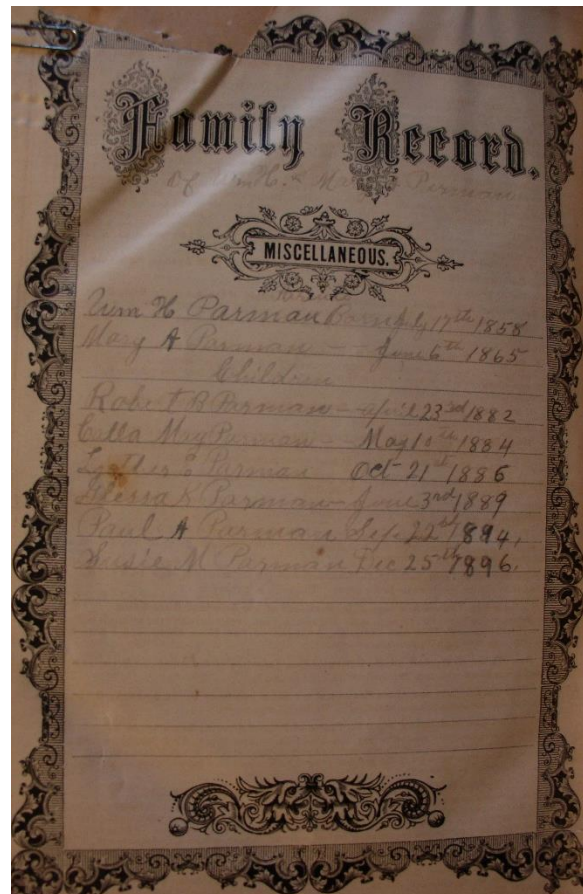 Family Record.
Of Wm H. & Parman
MISCELLANEOUS.
Wm H Parman Born July 17th 1858
Mary A Parman - June 6th 1865
Children
Robert B Parman - april 23rd 1882
May Parman - May 1884
Parman Oct 21st 1886
Parman - June 3rd 1889
Paul A Parman Sep. 22 1894,
Susie M Parman Dec 25th 1896.